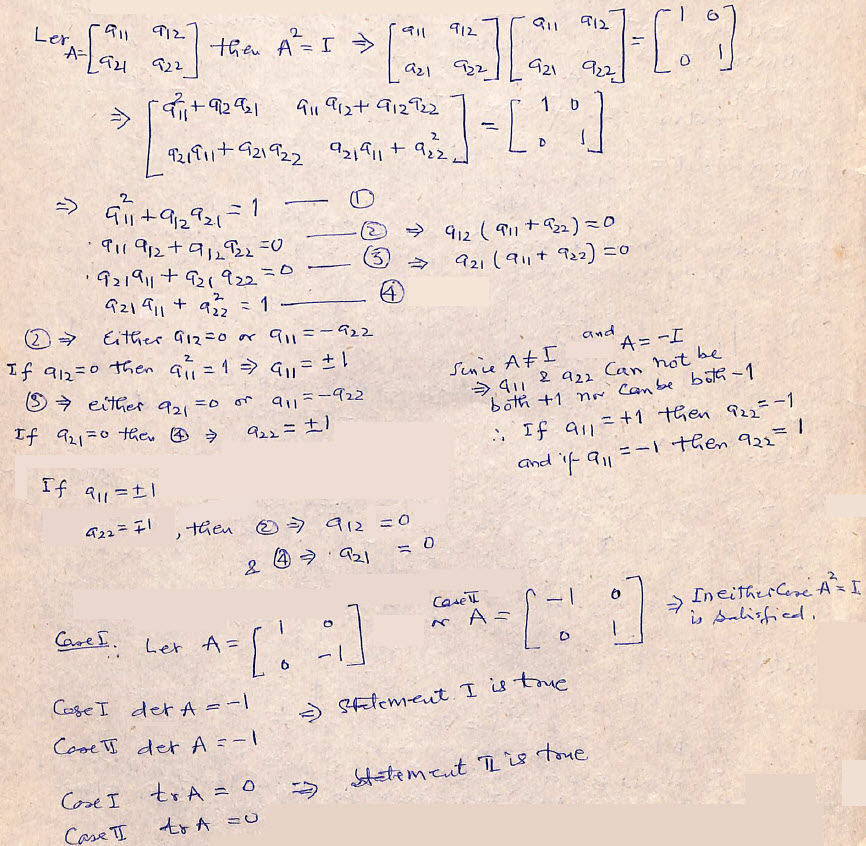 Let A = [a11 a12; a21 a22] then A² = I ⇒ [a11 a12; a21 a22] [a11 a12; a21 a22] = [1 0; 0 1]
⇒ [a11² + a12 a21   a11 a12 + a12 a22; a21 a11 + a21 a22   a21 a11 + a22²] = [1 0; 0 1]
⇒ a11² + a12 a21 = 1 — ①
a11 a12 + a12 a22 = 0 — ② ⇒ a12 (a11 + a22) = 0
a21 a11 + a21 a22 = 0 — ③ ⇒ a21 (a11 + a22) = 0
a21 a11 + a22² = 1 — ④
② ⇒ Either a12 = 0 or a11 = -a22
If a12 = 0 then a11² = 1 ⇒ a11 = ±1
③ ⇒ either a21 = 0 or a11 = -a22
If a21 = 0 then ④ ⇒ a22 = ±1
Since A ≠ I and A = -I
⇒ a11 & a22 Can not be
both +1 nor Can be both -1
∴ If a11 = +1 then a22 = -1
and if a11 = -1 then a22 = 1
If a11 = ±1
a22 = ∓1, then ② ⇒ a12 = 0
& ④ ⇒ a21 = 0
Case I. Let A = [1 0; 0 -1] Case II or A = [-1 0; 0 1] ⇒ In either Case A² = I
is satisfied.
Case I det A = -1 ⇒ Statement I is true
Case II det A = -1
Case I tr A = 0 ⇒ Statement II is true
Case II tr A = 0